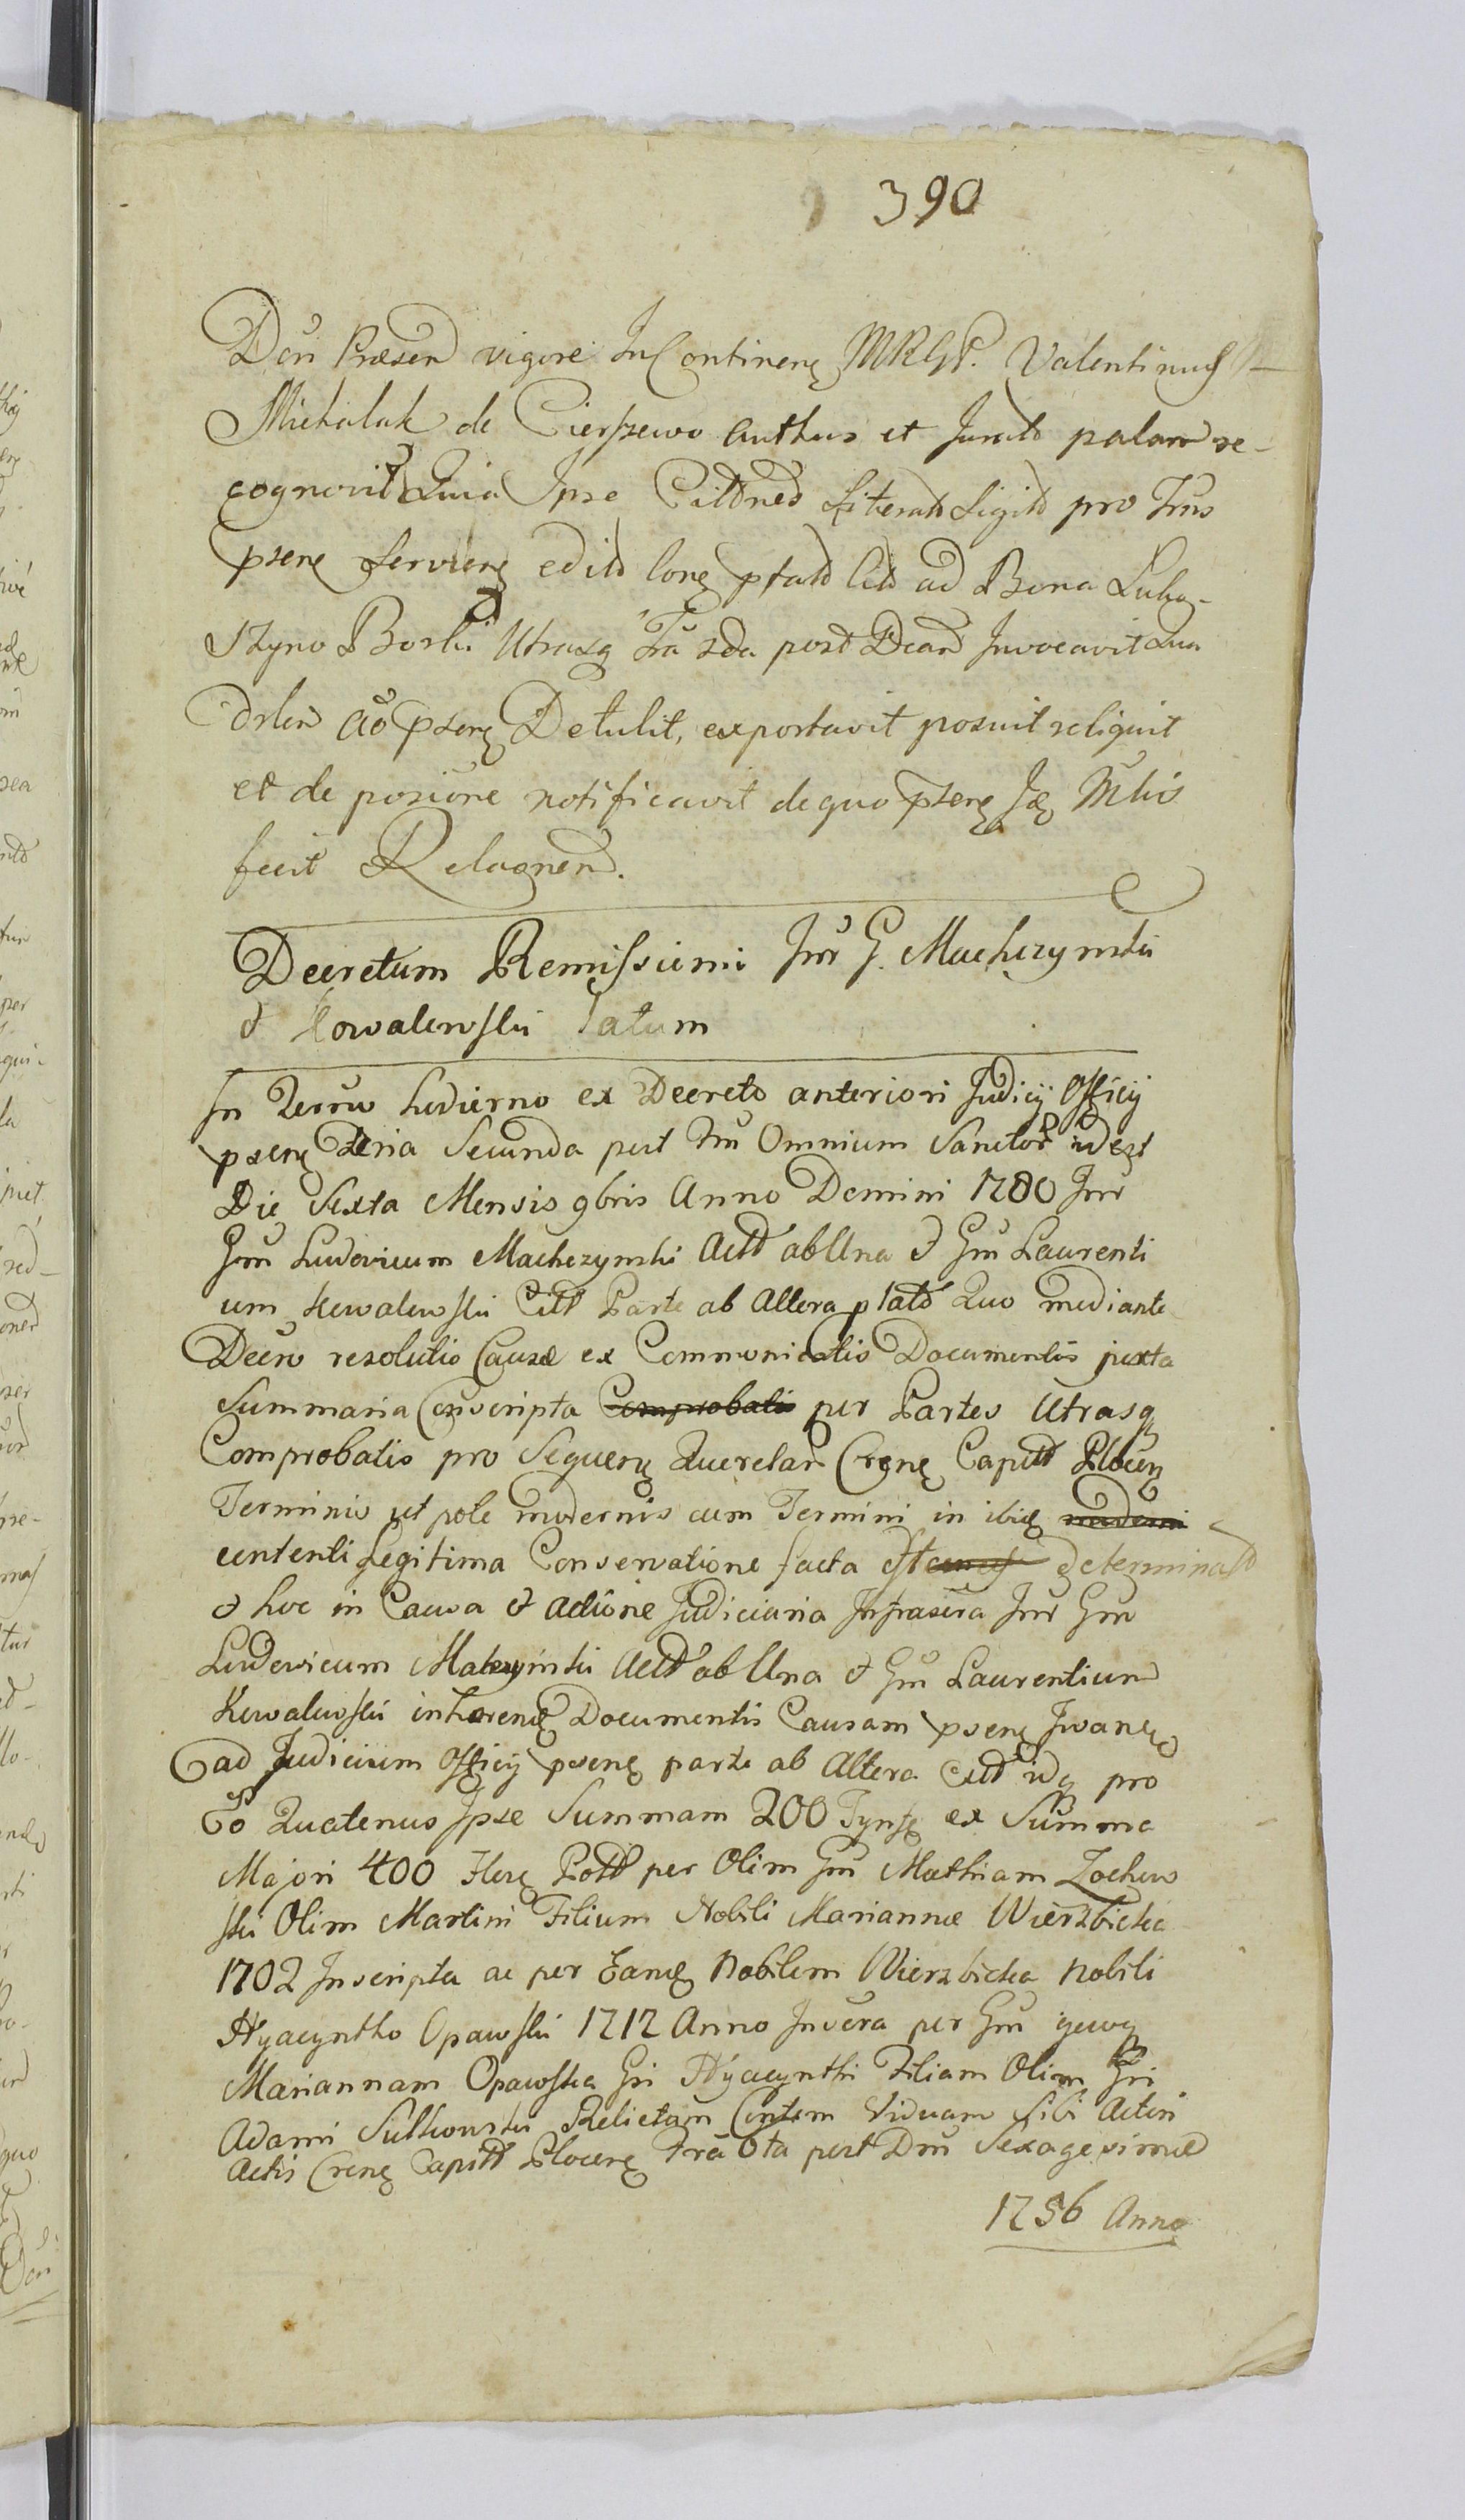 390
Dcń Præsen vigore InContineñ MRGP. Valentinus
Michalak de Cierszewo Authus et Jurato palam re-
cognovit Quia Ipse Citones Literato Sigito pro Trms
psene servieñ edito lone ptato Cito ad Bona Luba-
szyno Borki Utrasq Fra 2da post Dcam Invocavit Qua
drlem ao psene Detulit, exportavit posuit reliquit
et de posicione notificavit de quo psene Jæ Mlis
fecit Relaonem.
Decretum Remissionis Inr G. Machczynski
et Kowalewski Latum
In Termo hodierno ex Decreto anteriori Judicij Officij
psene Feria Secunda post ftm Omnium Sanctor idest
Die Sexta Mensis 9bris Anno Domini 1780 Inr
Gm Ludovicum Machczynski Actt ab Una et Gm Laurenti
um Kowalewski Citt Parte ab Altera plato Quo mediante
Decro resolutio Causæ ex Communicatis Documentis juxta
Summaria Conscripta Comprobatis per Partes Utrasq
Comprobatis pro Sequene Querelar Crene Capitt Plocen
Terminis ut pote modernis cum Termini in ibiq moderni
contenti Legitima Conservatione facta determinato
et hoc in Causa et Actione Judiciaria Infrascra Inr Gm
Ludovicum Machczynski Actt ab Una et Gm Laurentium
Kowalewski inhærene Documentis Causam psene Juvane
ad Judicium Officij psene parte ab Altera Citt idq pro
Eo Quatenus Ipse Summam 200 Tynf ex Summa
Majori 400 Flore Pott per Olim Gm Mathiam Zochow
ski Olim Martini Filium Nobili Mariannæ Wierzbicka
1702 Inscripta ac per Eamq Nobilem Wierzbicka Nobili
Hyacyntho Opawski 1712 Anno Inscra per Gm
Mariannam Opawska Gsi Hyacynthi Filiam Olim Gsi
Adami Sulkowski Relictam Contem Viduam sibi Actori
Actis Crene Capitt Plocene Fra 6ta post Dm Sexagesimæ
1756 Anno